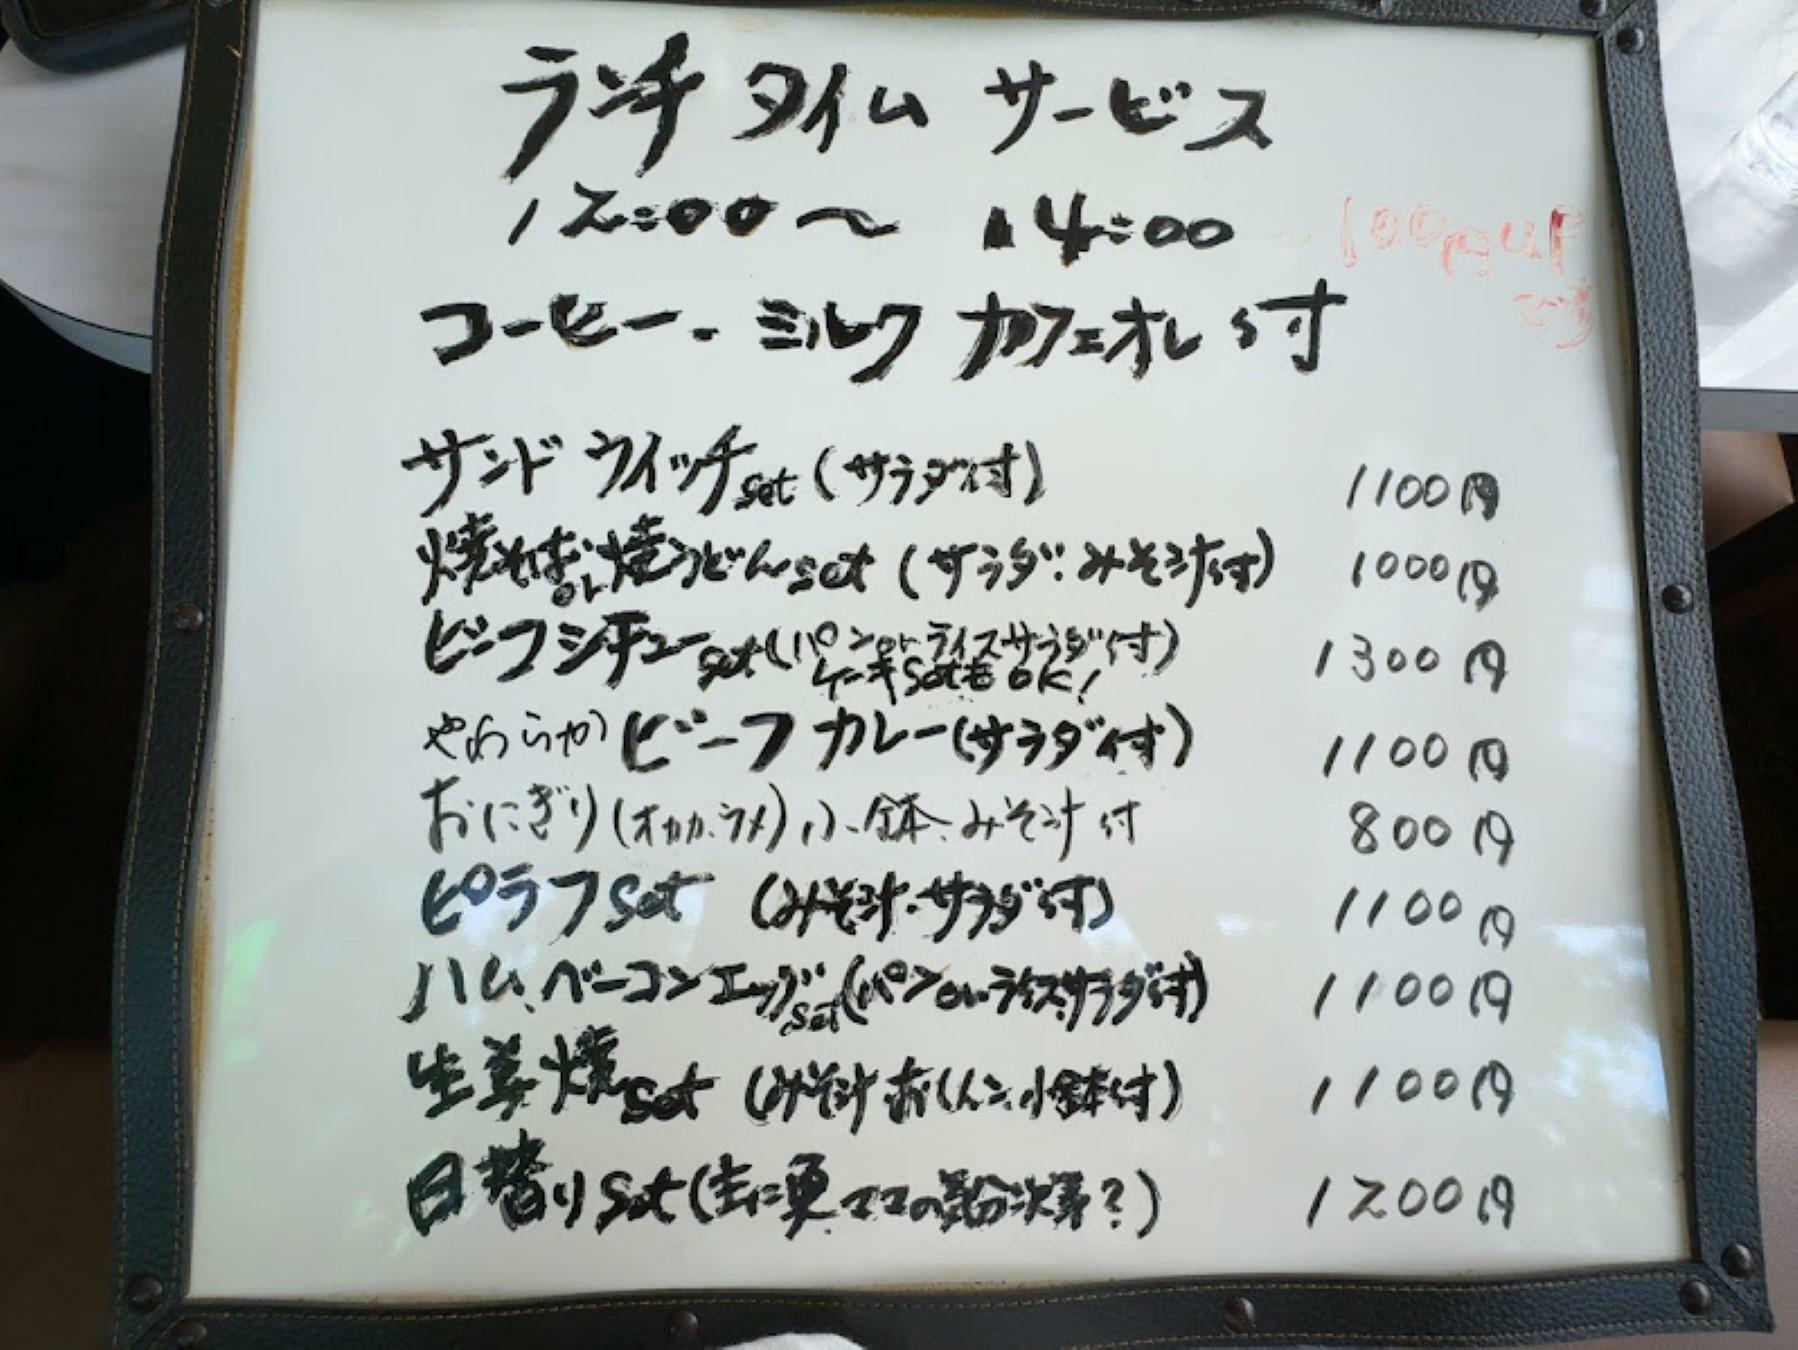 ランチ タイム サービス
12:00〜 14:00
100円up
です
コーヒー・ミルク カフェオレ付
サンドウィッチset(サラダ付) 1100円
焼そばor焼うどんset (サラダ・みそ汁付) 1000円
ビーフシチューset(パンorライスサラダ付) 1300円
ケーキsetもOK!
やわらかビーフカレー(サラダ付) 1100円
おにぎり(オカカ、ウメ)、小鉢、みそ汁付 800円
ピラフset (みそ汁・サラダ付) 1100円
ハム、ベーコンエッグset(パンorライスサラダ付) 1100円
生姜焼set (みそ汁 おしんこ、小鉢付) 1100円
日替りset(主に夏ママの気分次第?) 1200円